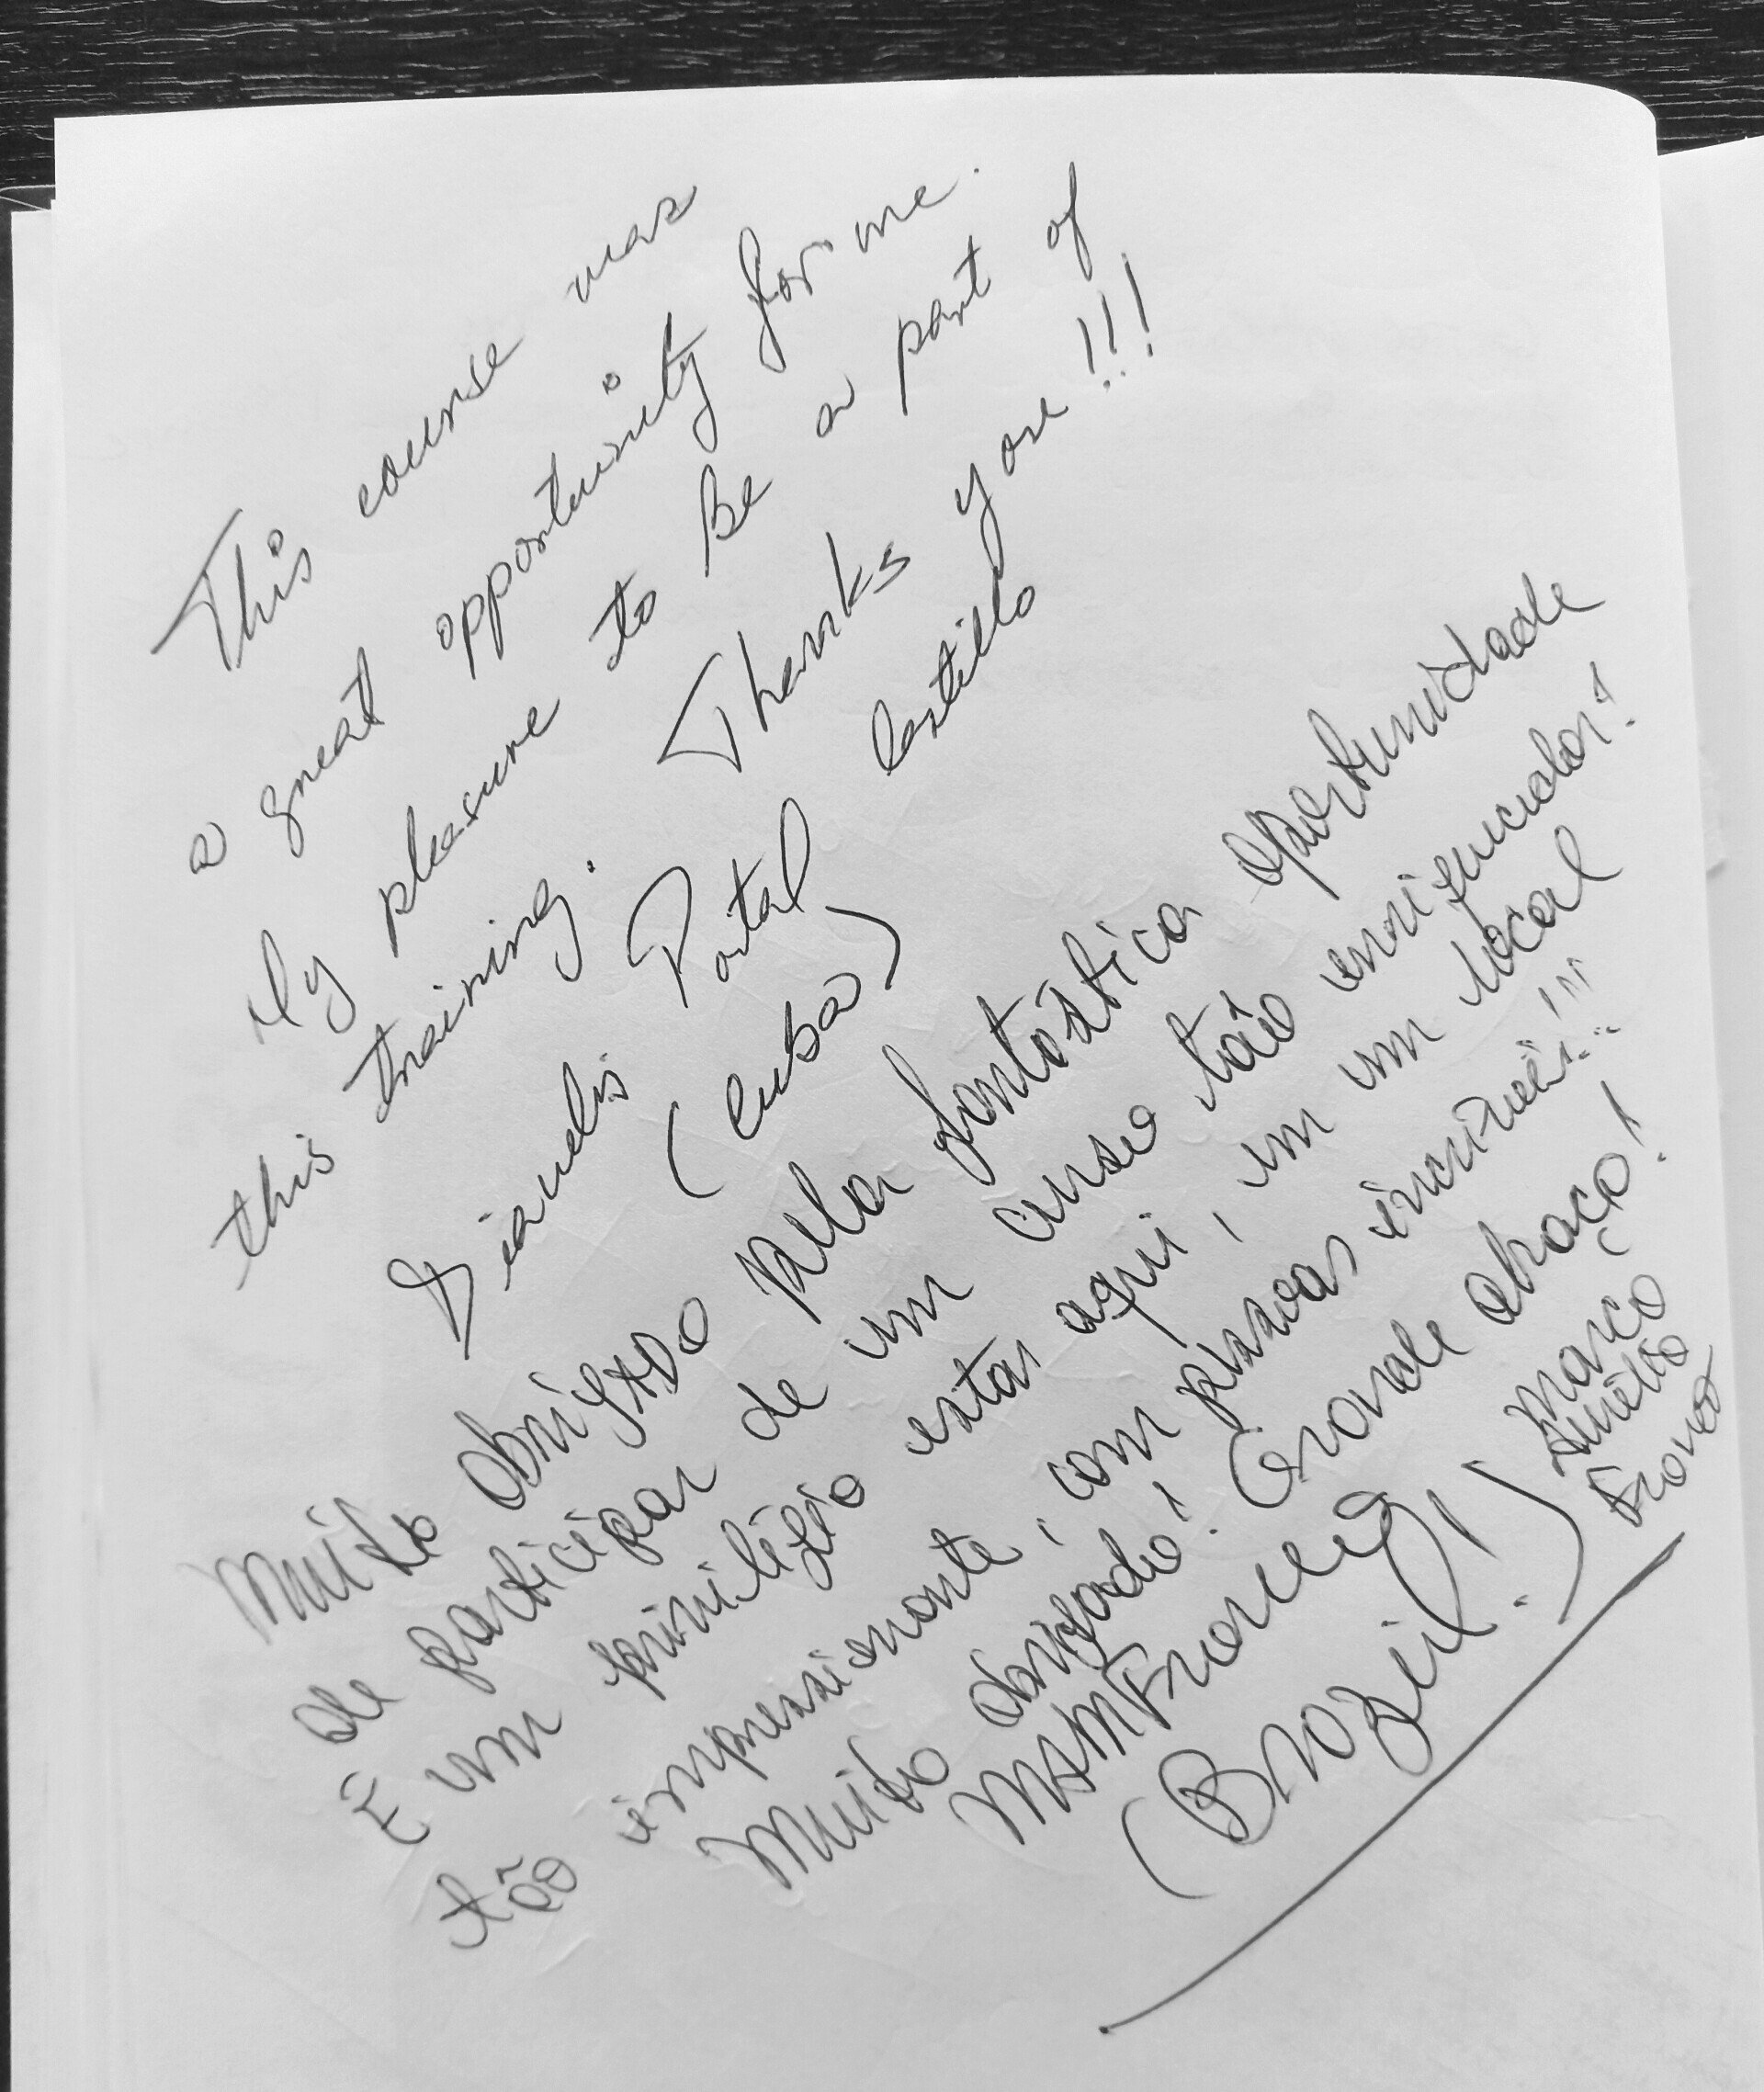 This course was
a great opportunity for me.
My pleasure to Be a part of
this training. Thanks you!!!
Portal Castillo
(Cuba)
Muito obrigado pela fantástica oportunidade
de participar de um curso tão enriquecedor!
É um privilégio estar aqui, em um local
tão impressionante, com pessoas incríveis!!!
Muito obrigado! Grande abraço!
(Brazil!)
Marco